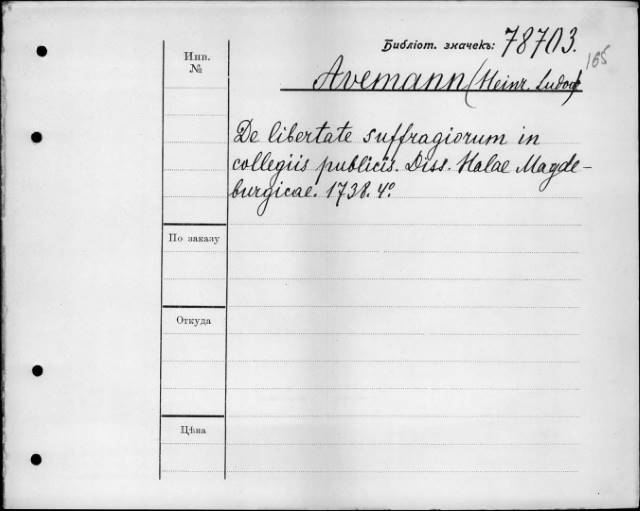 Библіот. значекъ: 78703.
165
Инв.
№
Avemann (Heinr. Ludov)
De libertate suffragiorum in
collegiis publicis. Diss. Halae Magde-
burgicae. 1738. 4º
По заказу
Откуда
Цѣна